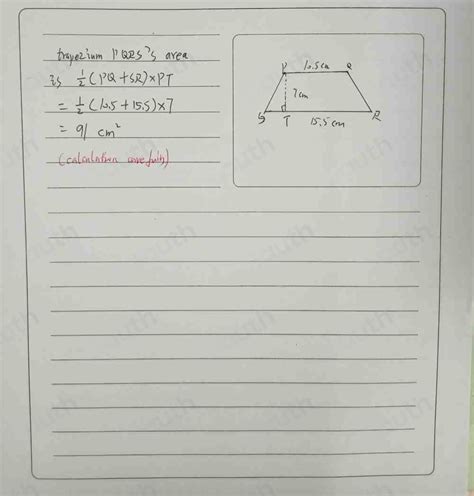 trapezium PQRS's area
is ½(PQ+SR)×PT
= ½(10.5+15.5)×7
= 91 cm²
(calculation carefully)
P 10.5cm Q
7cm
S T 15.5 cm R